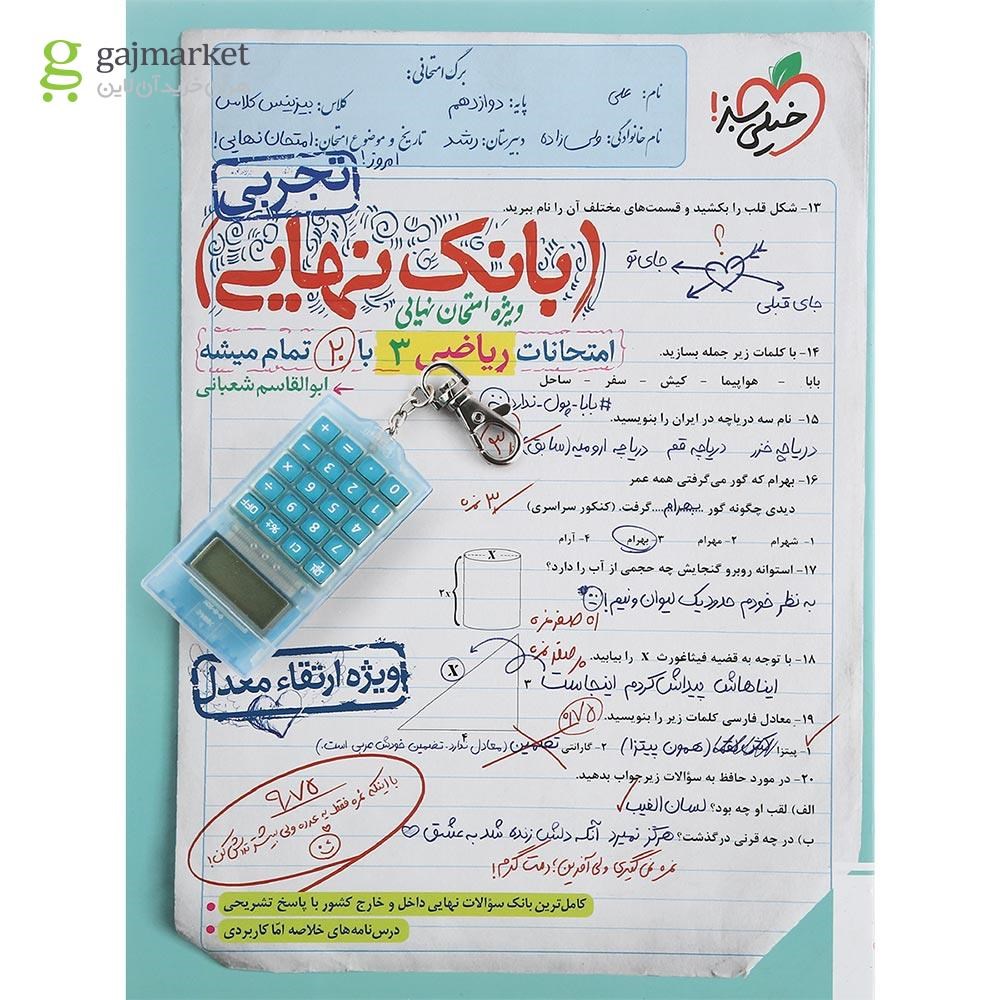 gajmarket
هزمان خریدآن‌لاین
برگ امتحانی:
خیلی سبز!
نام: علی
پایه: دوازدهم
کلاس: بیزینس کلاس
نام خانوادگی: ولی‌زاده
دبیرستان: رشد
تاریخ و موضوع امتحان: امتحان نهایی!
امروز!
تجربی
۱۳- شکل قلب را بکشید و قسمت‌های مختلف آن را نام ببرید.
(بانک نهایی)
؟
جای تو
جای قبلی
ویژه امتحان نهایی
امتحانات ریاضی ۳ با ۲۰ تمام میشه
۱۴- با کلمات زیر جمله بسازید.
بابا - هواپیما - کیش - سفر - ساحل
ابوالقاسم شعبانی
#بابا-پول-ندارد
۱۵- نام سه دریاچه در ایران را بنویسید.
دریاچه خزر دریاچه قم دریاچه ارومیه (سابق)
۱۶- بهرام که گور می‌گرفتی همه عمر
دیدی چگونه گور ...بهرام... گرفت. (کنکور سراسری)
۳ نمره
۱- شهرام ۲- مهرام ۳- بهرام ۴- آرام
۱۷- استوانه روبرو گنجایش چه حجمی از آب را دارد؟
X
۲x
به نظر خودم حدود یک لیوان و نیم!
۰ صفر نمره
ویژه ارتقاء معدل
۱۸- با توجه به قضیه فیثاغورث X را بیابید.
۰ صفر نمره
X
۳
۴
ایناهاش پیداش کردم اینجاست
۱۹- معادل فارسی کلمات زیر را بنویسید.
۰/۷۵
۱- پیتزا (همون پیتزا) ۲- گارانتی تضمین (معادل ندارد. تضمین خودش عربی است.)
۲۰- در مورد حافظ به سؤالات زیر جواب بدهید.
الف) لقب او چه بود؟ لسان الغیب
ب) در چه قرنی درگذشت؟ هرگز نمیرد آنکه دلش زنده شد به عشق
نمره نمی‌گیری ولی آفرین؛ دمت گرم!
۹/۷۵
با اینکه نمره فقط یه عدده ولی بیشتر تلاش کن!
کامل‌ترین بانک سؤالات نهایی داخل و خارج کشور با پاسخ تشریحی
درس‌نامه‌های خلاصه امّا کاربردی
+ = . 0
- 3 2 1
× 6 5 4
÷ 9 8 7
OFF %± CI ON/C